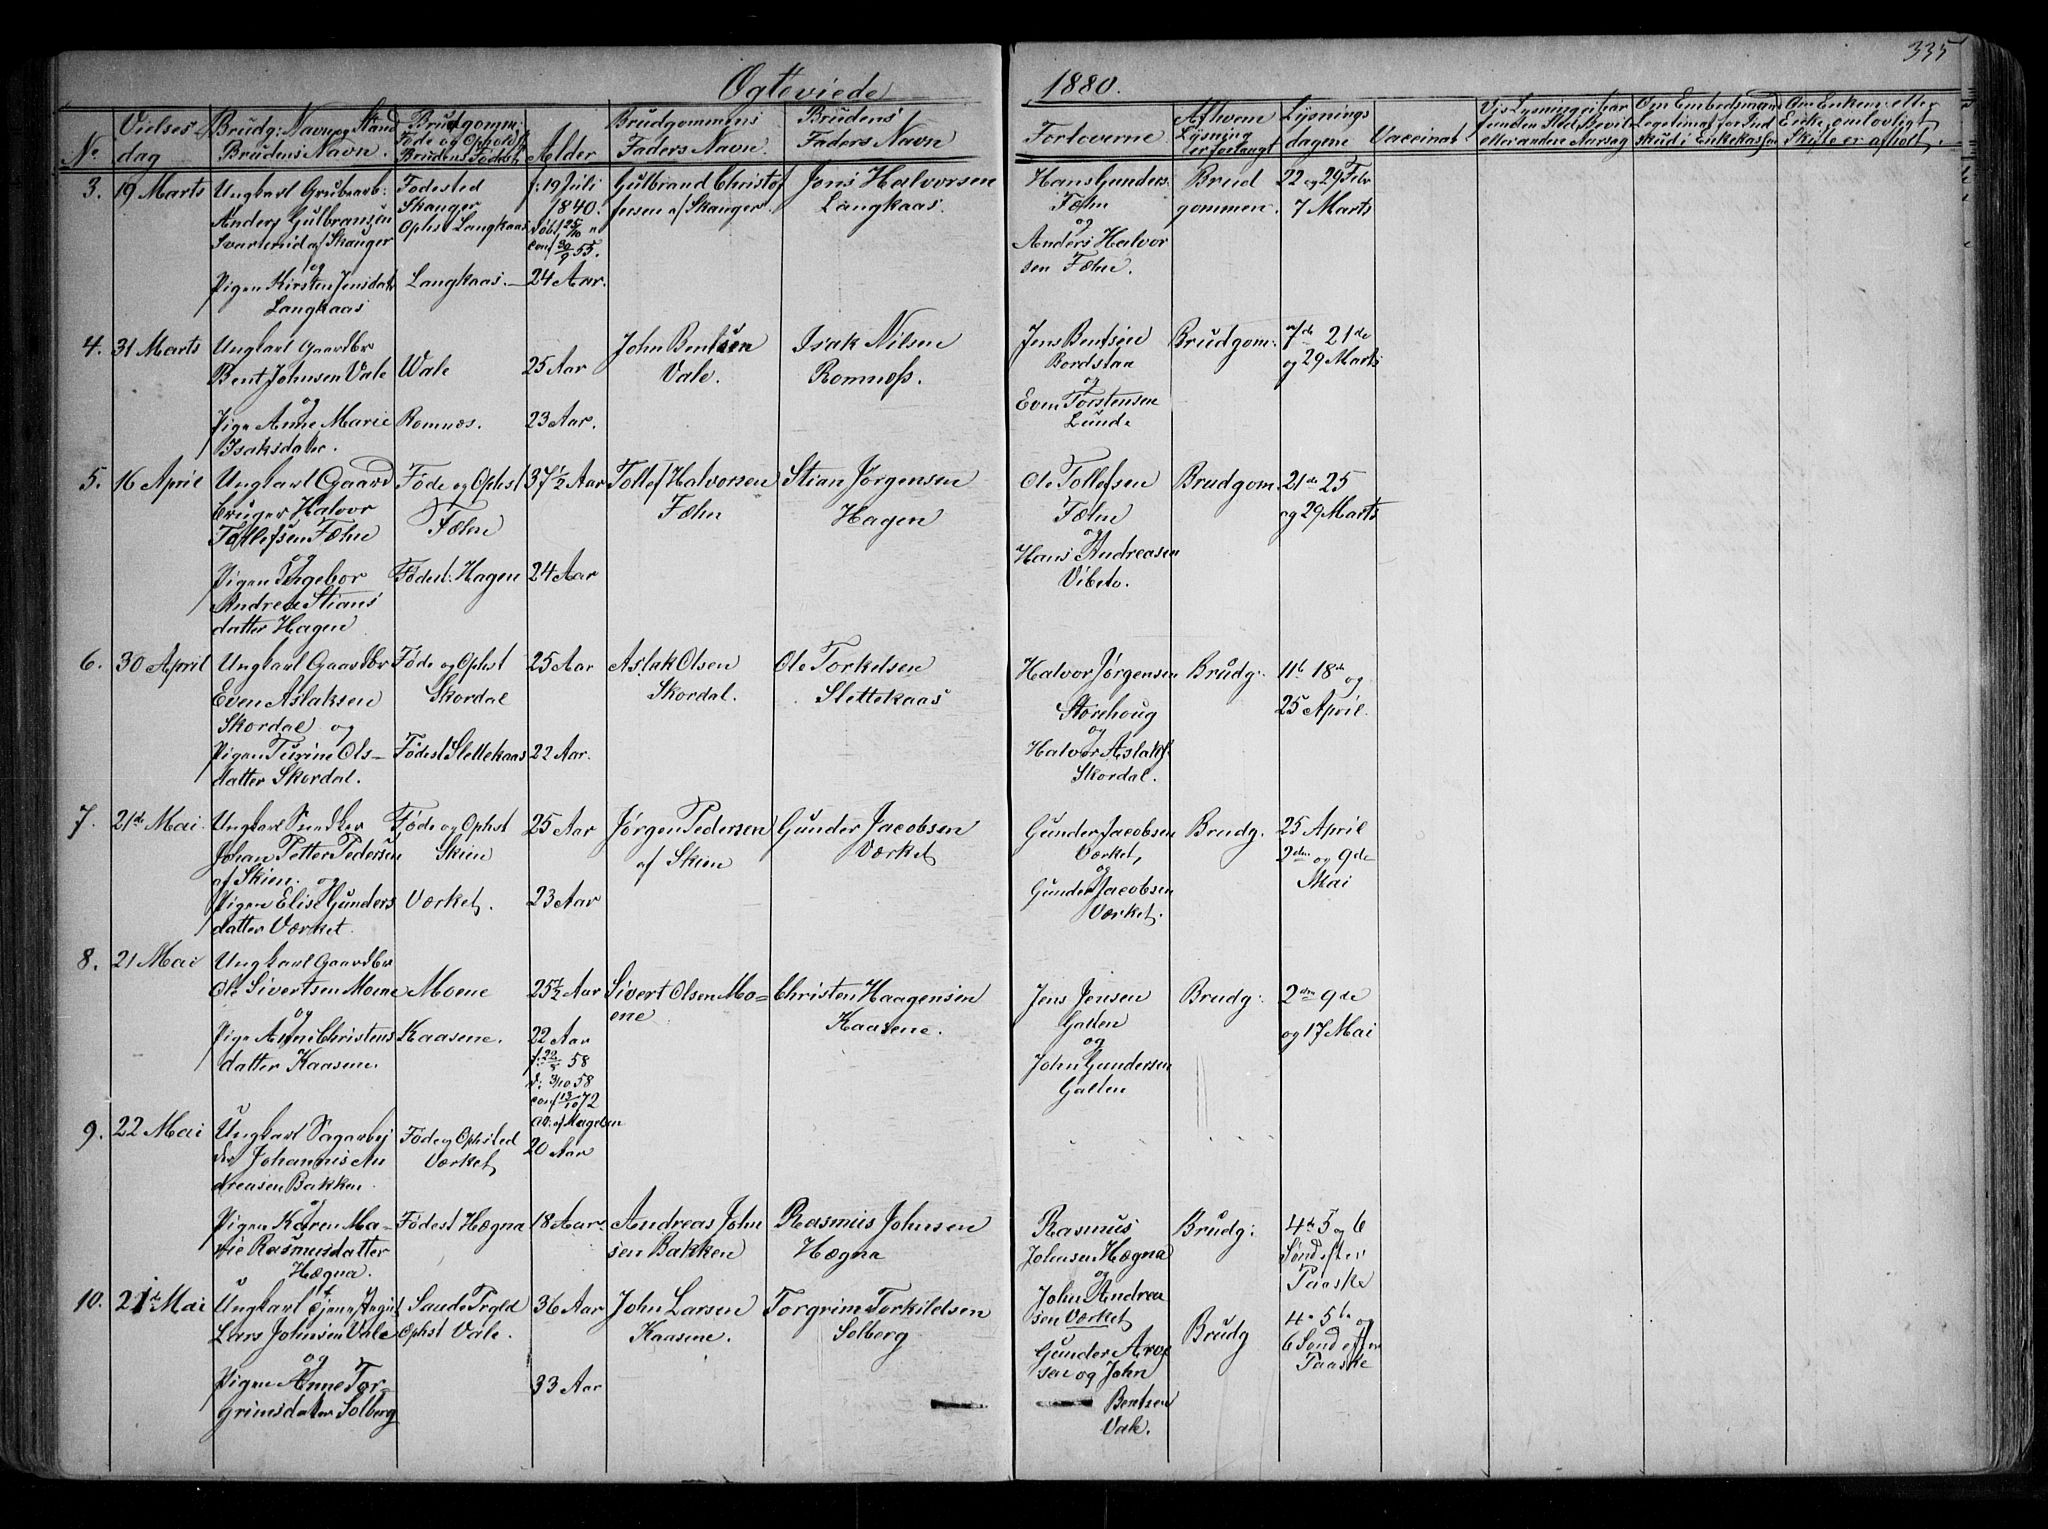 335
Ogteviede 1880.
No
Vielses dag
Brudg: Navn og Stand Brudens Navn.
Brudgomm: Føde og Opholdst Brudens Fødest
Alder
Brudgommens Faders Navn
Brudens Faders Navn
Forloverne
Af hvem Lysning er forlangt
Lysnings dagene
Vaccinat
3. 19 Marts
Ungkarl Grubearb:
Anders Gulbransen
Svartemid af Skauger
og
Pigen Kirsten Jensdatr
Langkaas
Fødested
Skauger
Ophst Langkaas
Langkaas.
f: 19 Juli
1840.
døbt 25/10
conf 30/9 55.
24 Aar.
Gulbrand Christof
fersen af Skauger
Jens Halvorsen
Langkaas.
Hans Gunders.
Fæhn
og
Anders Halvor
sen Fæhn.
Brud
gommen.
22 og 29 Febr
7 Marts
4. 31 Marts
Ungkarl Gaardbr
Bent Johnsen Vale
og
Pige Anne Marie
Isaksdater.
Wale
Romnæs.
25 Aar
23 Aar.
John Bentsen
Vale.
Isak Nilsen
Romnæss.
Jens Bentsen
Bordstaa
og
Even Torstensen
Lunde
Brudgom:
7de 21de
og 29 Marts
5. 16 April
Ungkarl Gaard
bruger Halvor
Tollefsen Fæhn
og
Pigen Ingebor
Andrea Stians
datter Hagen
Føde og Ophst
Fæhn
Fødest: Hagen
37 1/2 Aar
24 Aar
Tollef Halvorsen
Fæhn
Stian Jørgensen
Hagen
Ole Tollefsen
Fæhn
og
Hans Andreasen
Vibeto.
Brudgom.
21de 25
og 29 Marts
6. 30 April
Ungkarl Gaardbr
Even Aslaksen
Skordal og
Pigen Turine Ols-
datter Skordal.
Føde og Ophst
Skordal
Fødest Slettekaas
25 Aar
22 Aar.
Aslak Olsen
Skordal.
Ole Torkelsen
Slettekaas
Halvor Jørgensen
Storehoug
og
Halvor Aslaks.
Skordal.
Brudg:
11te 18de og
25 April.
7. 21de Mai.
Ungkarl
Johan Petter Pedersen
af Skien. og
Pigen Elise Gunders
datter Værket.
Føde og Ophst
Skien
Værket.
25 Aar
23 Aar
Jørgen Pedersen
af Skien
Gunder Jacobsen
Værket
Gunder Jacobsen
Værket,
og
Gunder Jacobsen
Værket.
Brudg.
25 April
2den og 9de
Mai
8. 21 Mai
Ungkarl Gaardbr
Ole Sivertsen Moene
og
Pige Anne Christens
datter Kaasene.
Moene
Kaasene.
25 1/2 Aar
22 Aar
58
d: 3/10 58
conf 13/10 72
Sivert Olsen Mo-
ene
Christen Haagensen
Kaasene.
Jens Jensen
Galten
og
John Gundersen
Galten
Brudg:
2den 9de
og 17 Mai
9. 22 Mai
Ungkarl Sagarbej
der Johannis An
dreasen Bakken
og
Pigen Karen Ma-
rie Rasmusdatter
Hægna.
Føde og Ophsted
Værket
Fødest Hægna
20 Aar
18 Aar.
Andreas John
sen Bakken
Rasmus Johnsen
Hægna
Rasmus
Johnsen Hægna
og
John Andrea
sen Værket
Brudg:
4de 5 og 6
Sønd efter
Paaske
10. 21de Mai
Ungkarl
Lars Johnsen Vale
og
Pigen Anne Tor-
grimsdater Solberg
Saude Prgld
Ophst Vale.
36 Aar
33 Aar
John Larsen
Kaasene.
Torgrim Torkildsen
Solberg
Gunder Arve
sen og John
Bentsen
Vale.
Brudg
4de 5te og
6 Sønd efter
Paaske